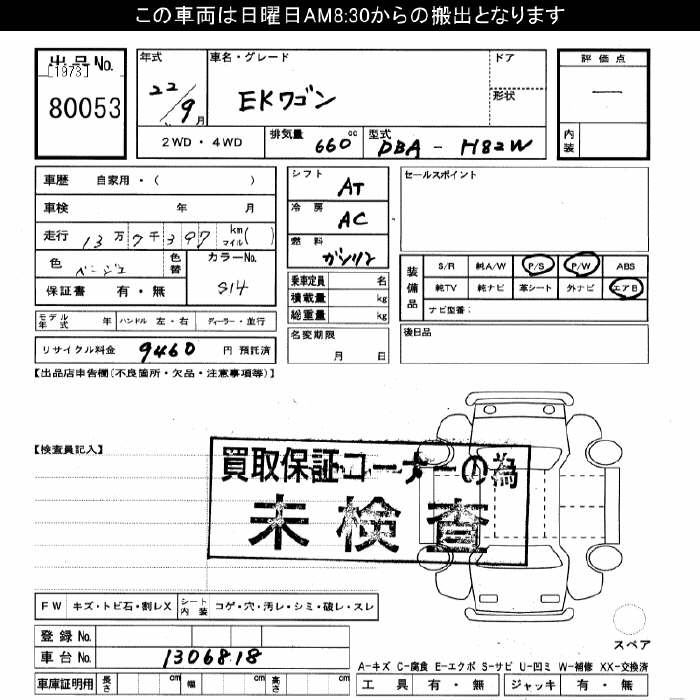 この車両は日曜日AM8:30からの搬出となります
出品No.
[1973]
80053
年式
22/9月
車名・グレード
EKワゴン
ドア
形状
評価点
—
内装
2WD・4WD
排気量 660cc
型式 DBA - H82W
車歴 自家用・(　　　)
車検 年 月
走行 13万7千397 km マイル( )
色 ベージュ 色替
カラーNo. S14
保証書 有・無
シフト AT
冷房 AC
燃料 ガソリン
乗車定員 名
積載量 kg
総重量 kg
セールスポイント
装備品
S/R 純A/W P/S P/W ABS
純TV 純ナビ 革シート 外ナビ エアB
ナビ型番:
モデル年式 年 ハンドル 左・右 ディーラー・並行
名変期限 月 日
後日品
リサイクル料金 9460 円 預託済
【出品店申告欄(不良箇所・欠品・注意事項等)】
【検査員記入】
買取保証コーナーの為
未検査
FW キズ・トビ石・割レX
シート内装 コゲ・穴・汚レ・シミ・破レ・スレ
スペア
登録No.
車台No. 1306818
A-キズ C-腐食 E-エクボ S-サビ U-凹ミ W-補修 XX-交換済
車庫証明用 長さ cm 幅 cm 高さ cm
工具 有・無 ジャッキ 有・無